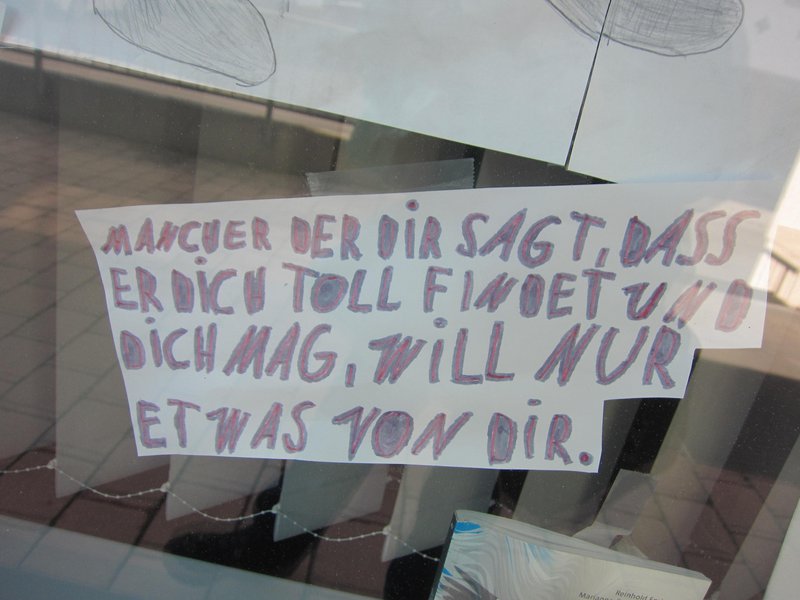 MANCHER DER DIR SAGT, DASS
ER DICH TOLL FINDET UND
DICH MAG, WILL NUR
ETWAS VON DIR.
Reinhold